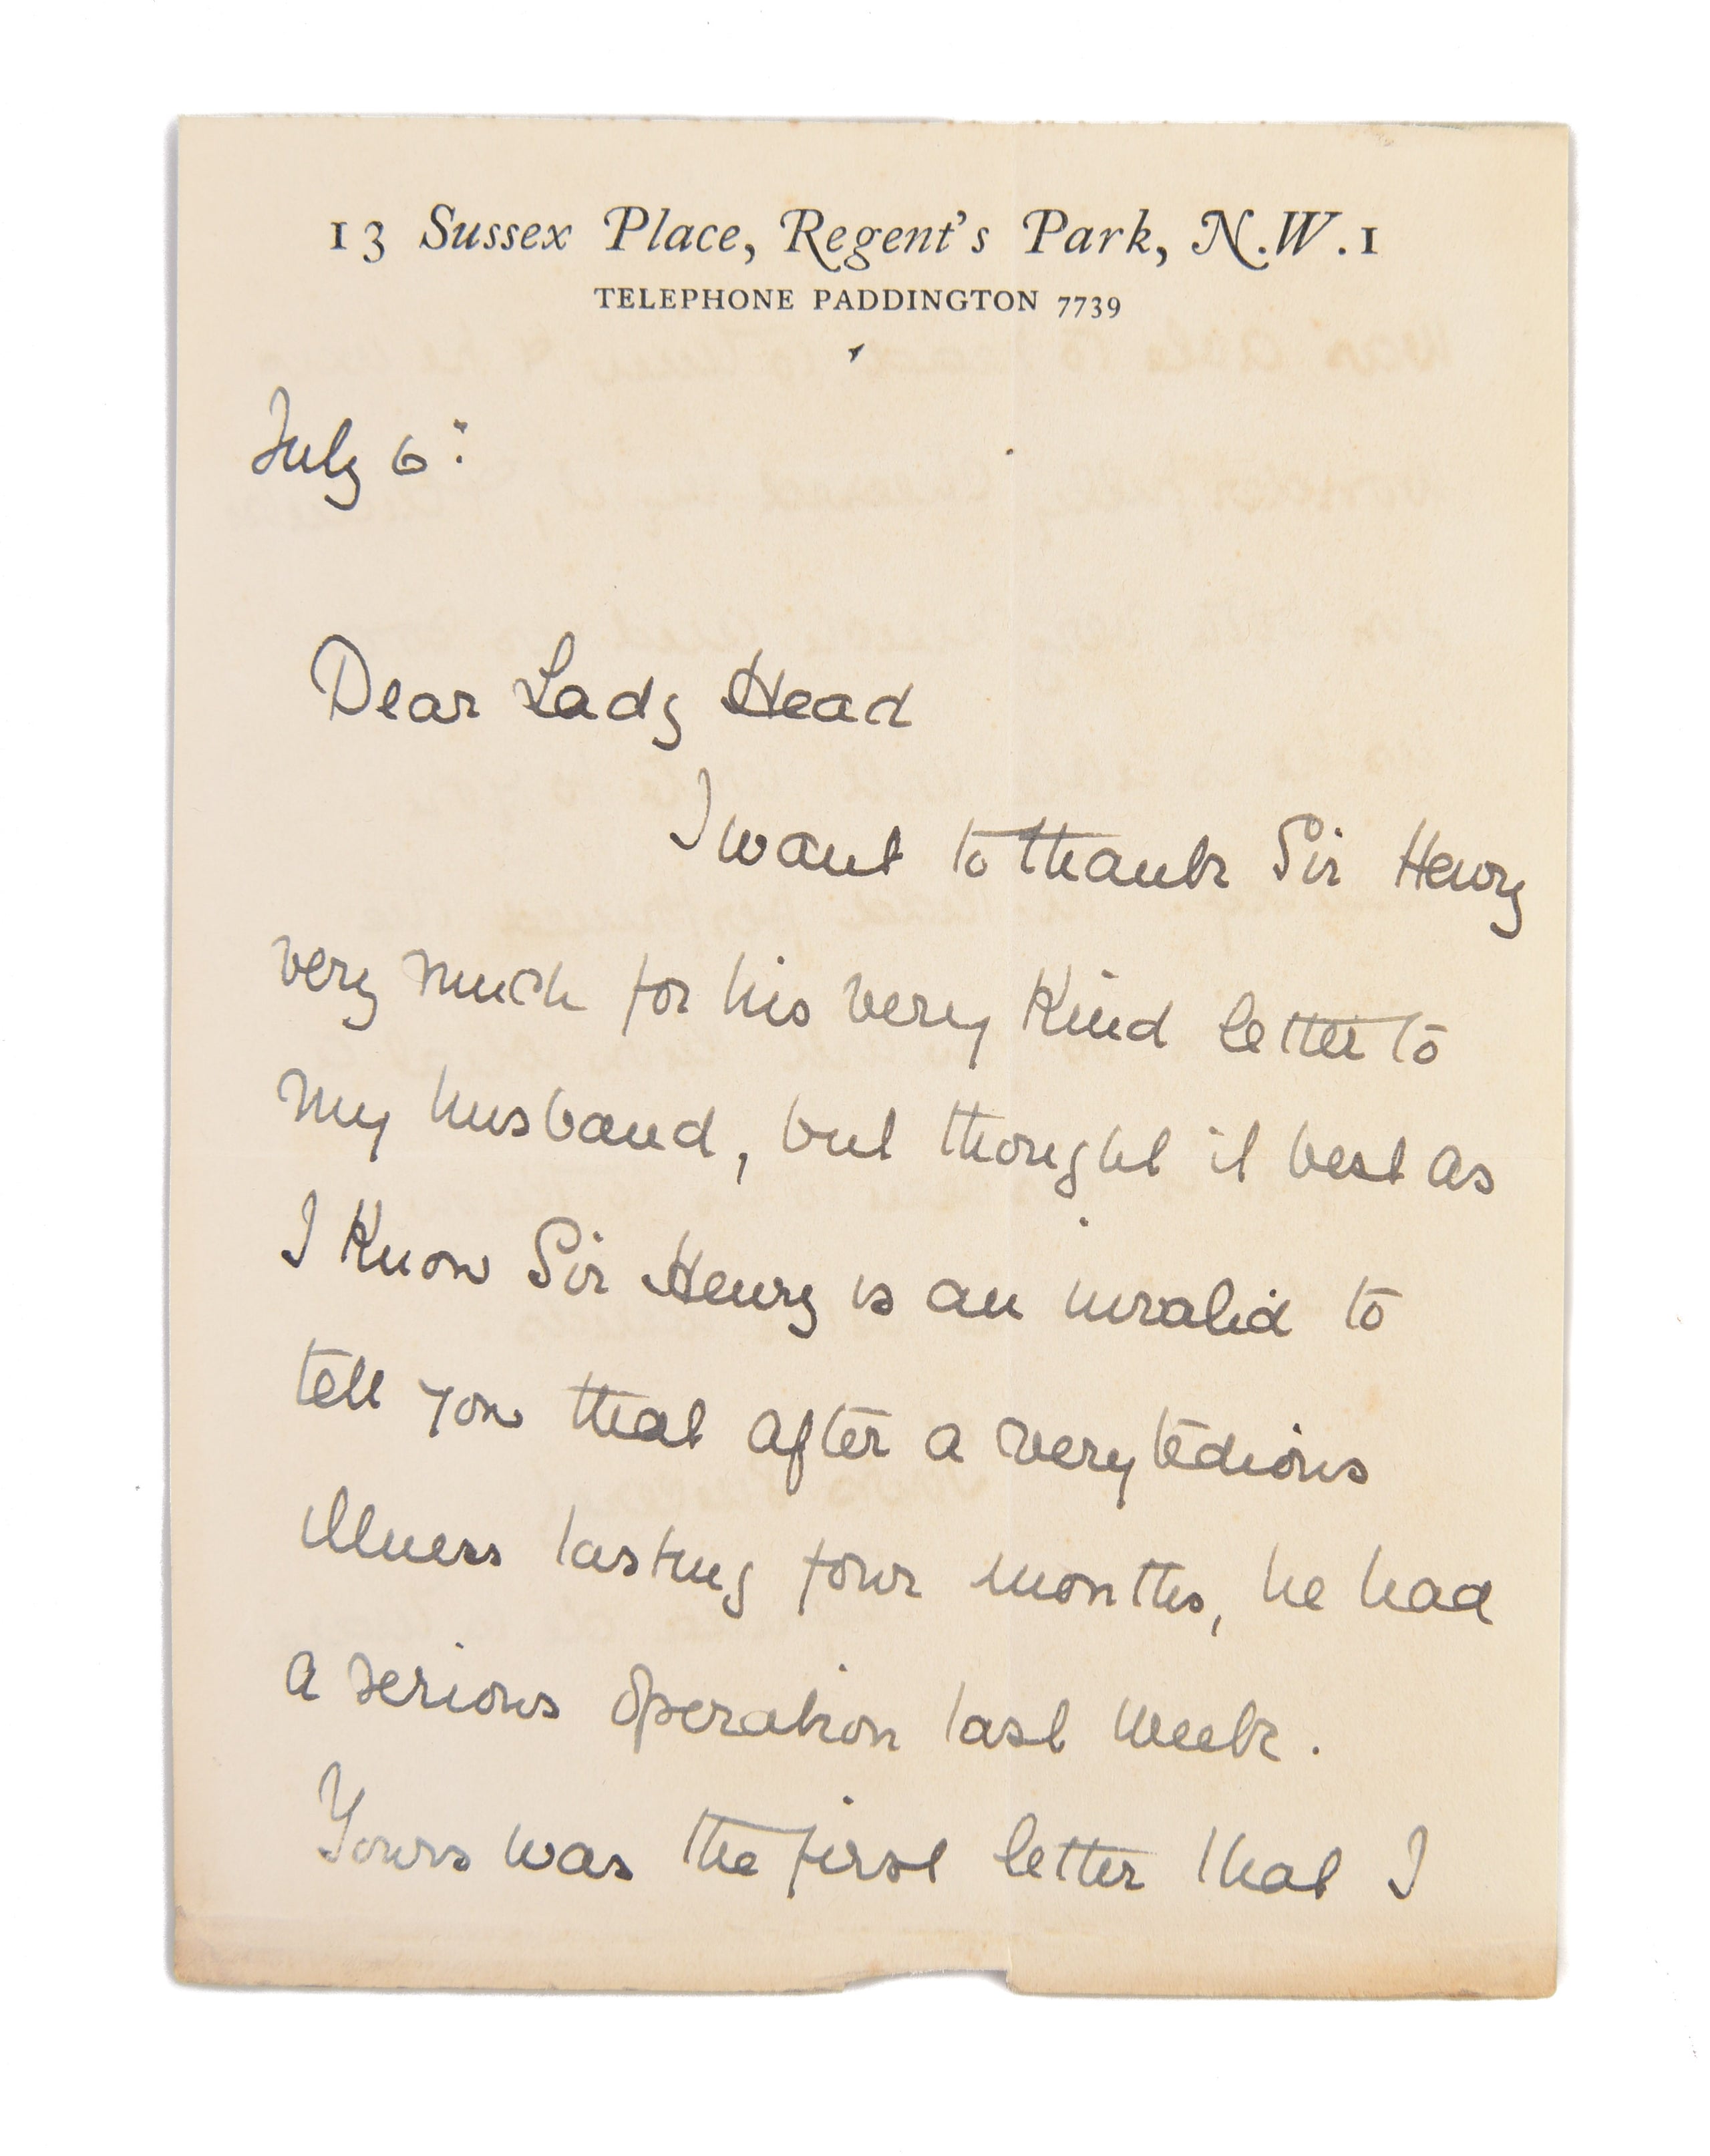 13 Sussex Place, Regent's Park, N.W.1
TELEPHONE PADDINGTON 7739
July 6:
Dear Lady Head
I want to thank Sir Henry
very much for his very kind letter to
my husband, but thought it best as
I know Sir Henry is an invalid to
tell you that after a very tedious
illness lasting four months, he had
a serious operation last week.
Yours was the first letter that I